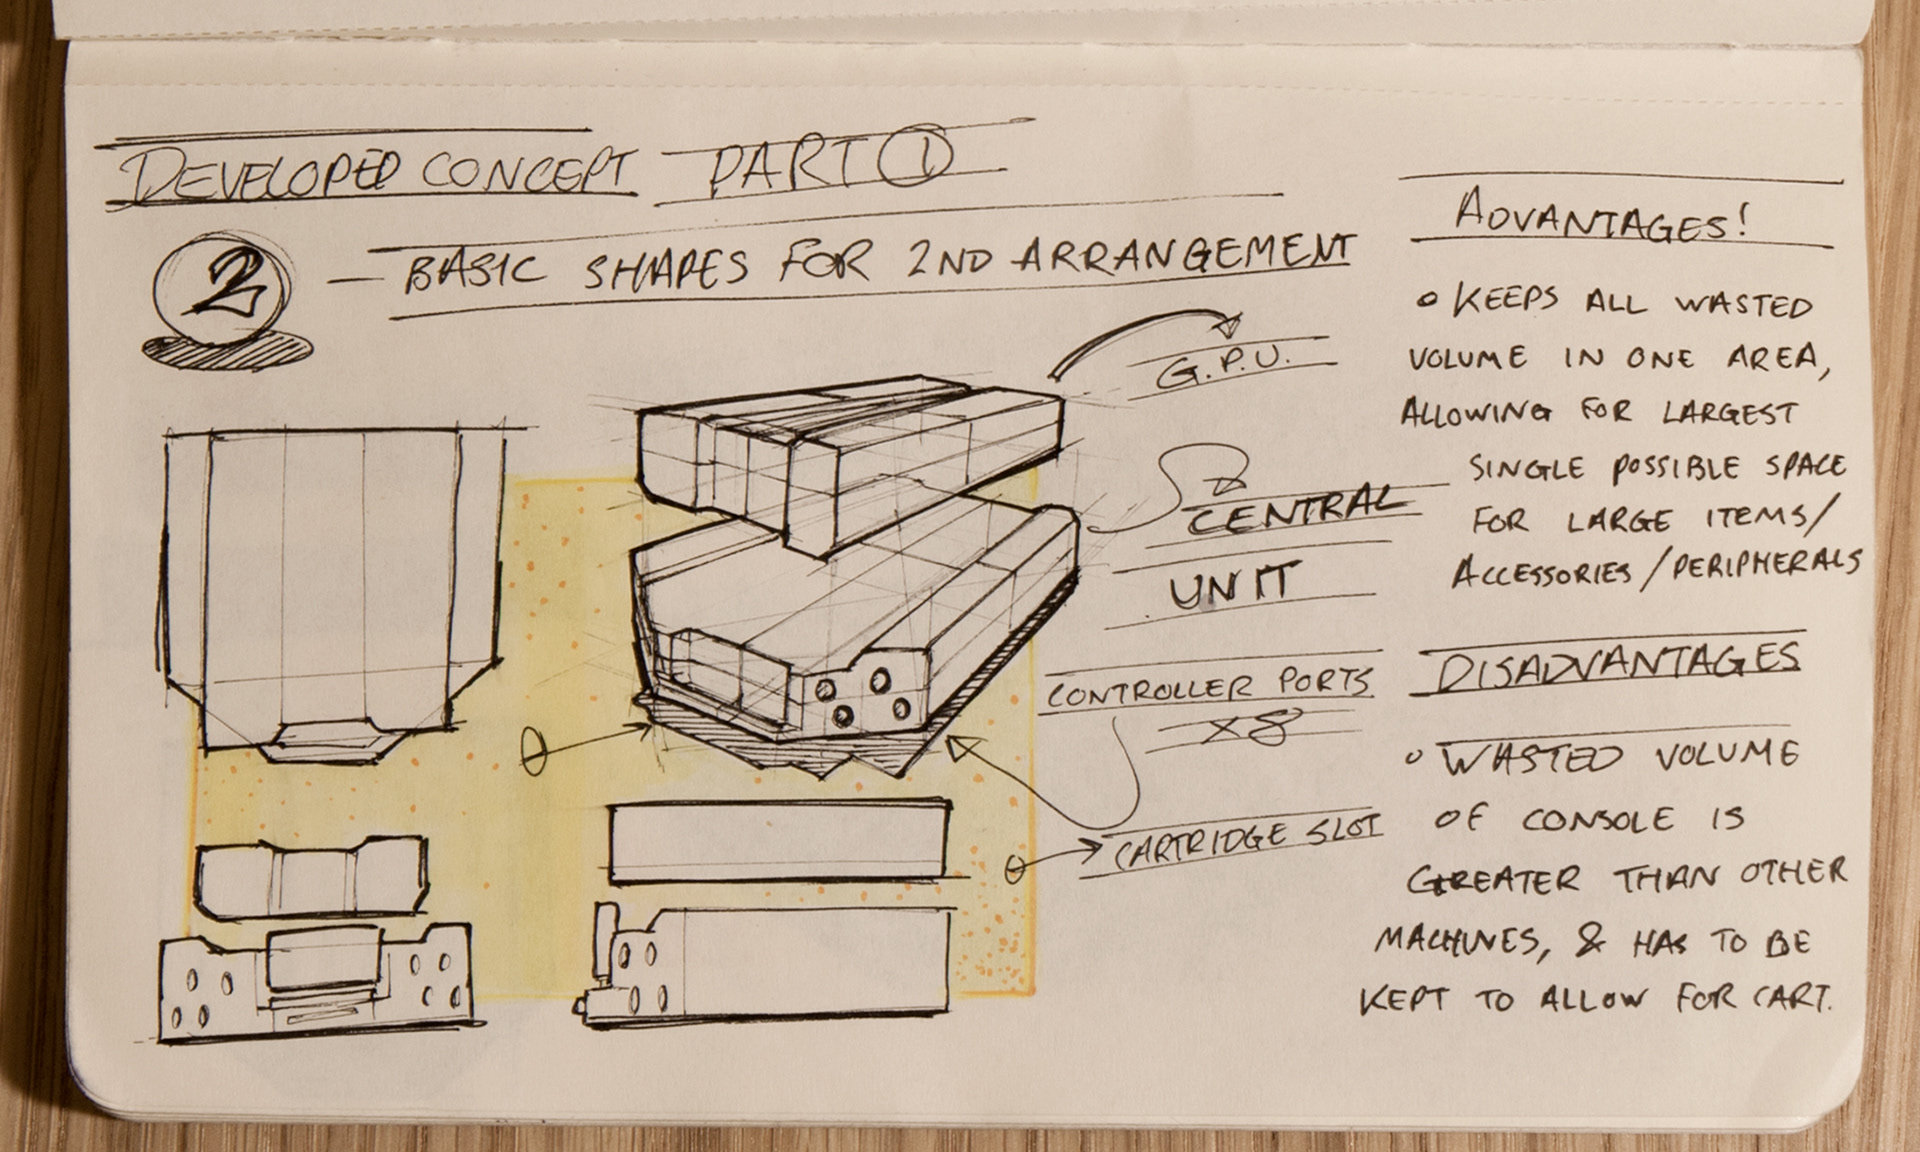 DEVELOPED CONCEPT PART 1
2 - BASIC SHAPES FOR 2ND ARRANGEMENT
G.P.U.
CENTRAL
UNIT
CONTROLLER PORTS
x8
CARTRIDGE SLOT
ADVANTAGES!
• KEEPS ALL WASTED
VOLUME IN ONE AREA,
ALLOWING FOR LARGEST
SINGLE POSSIBLE SPACE
FOR LARGE ITEMS/
ACCESSORIES/PERIPHERALS
DISADVANTAGES
• WASTED VOLUME
OF CONSOLE IS
GREATER THAN OTHER
MACHINES, & HAS TO BE
KEPT TO ALLOW FOR CART.